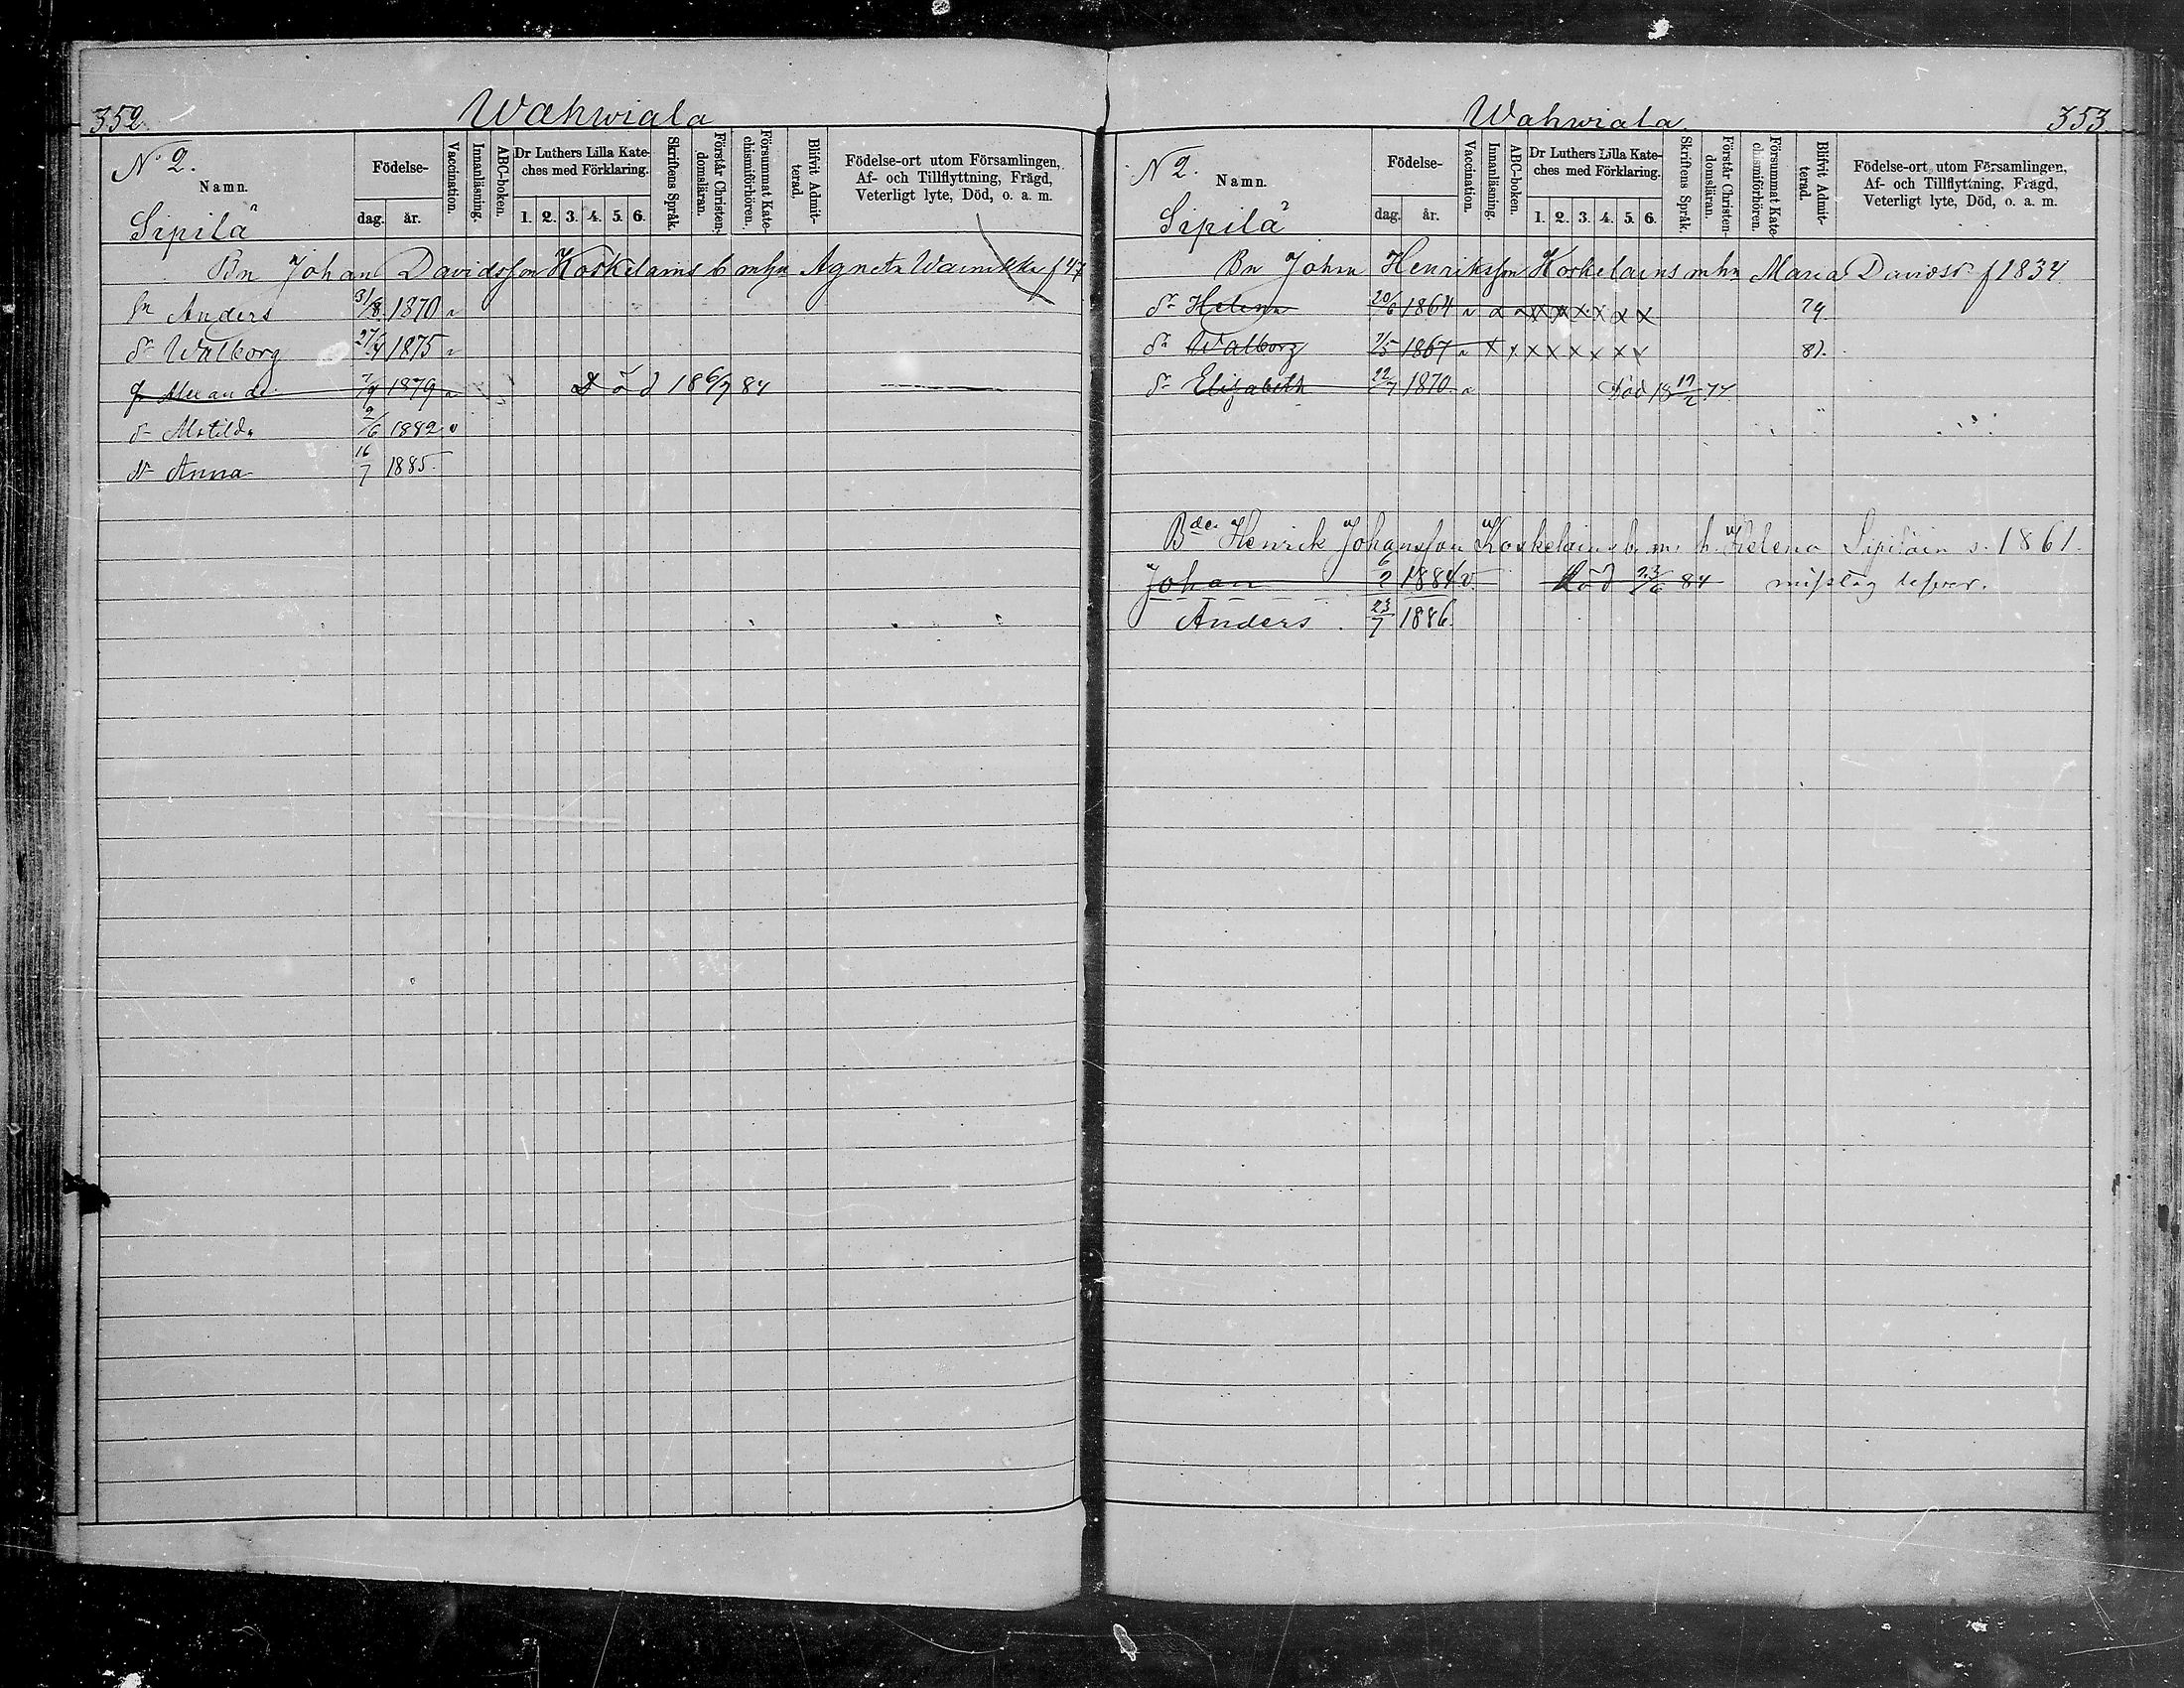 352.
Wahwiala
N 2.
Namn.
Födelse-
dag.
år.
Vaccination.
Innanläsning.
ABC-boken.
Dr Luthers Lilla Kate-
ches med Förklaring.
1. 2. 3. 4. 5. 6.
Skriftens Språk.
Förstår Christen-
domsläran.
Försummat Kate-
chismiförhören.
Blifvit Admit-
terad.
Födelse-ort utom Församlingen,
Af- och Tillflyttning, Frägd,
Veterligt lyte, Död, o. a. m.
Sipilä
Bn Johan Davidsson Koskelains b mhu Agneta f 47
sn Anders 31/8 1870 v
dr Walborg 27/4 1875 v
1879 v Död 18 6/7 84
dr Matilda 2/6 1882 v
dr Anna 16/7 1885.
Wahwiala
353.
N 2.
Namn.
Födelse-
dag.
år.
Vaccination.
Innanläsning.
ABC-boken.
Dr Luthers Lilla Kate-
ches med Förklaring.
1. 2. 3. 4. 5. 6.
Skriftens Språk.
Förstår Christen-
domsläran.
Försummat Kate-
chismiförhören.
Blifvit Admit-
terad.
Födelse-ort utom Församlingen,
Af- och Tillflyttning, Frägd,
Veterligt lyte, Död, o. a. m.
Sipilä
Bn Johan Henriksson Koskelains mhu Maria Davidsdr f 1834
dr Helena 20/6 1864 v x x x x x x x x 79.
dr Walborg 1867 v x x x x x x x x 81.
dr Elizabeth 22/7 1870 v Död 18 77
Bde Henrik Johansson Koskelains b. m. h. Helena Sipiläin s. 1861.
Johan 6/2 1884 v. Död 23/6 84 misstag
Anders 23/7 1886.